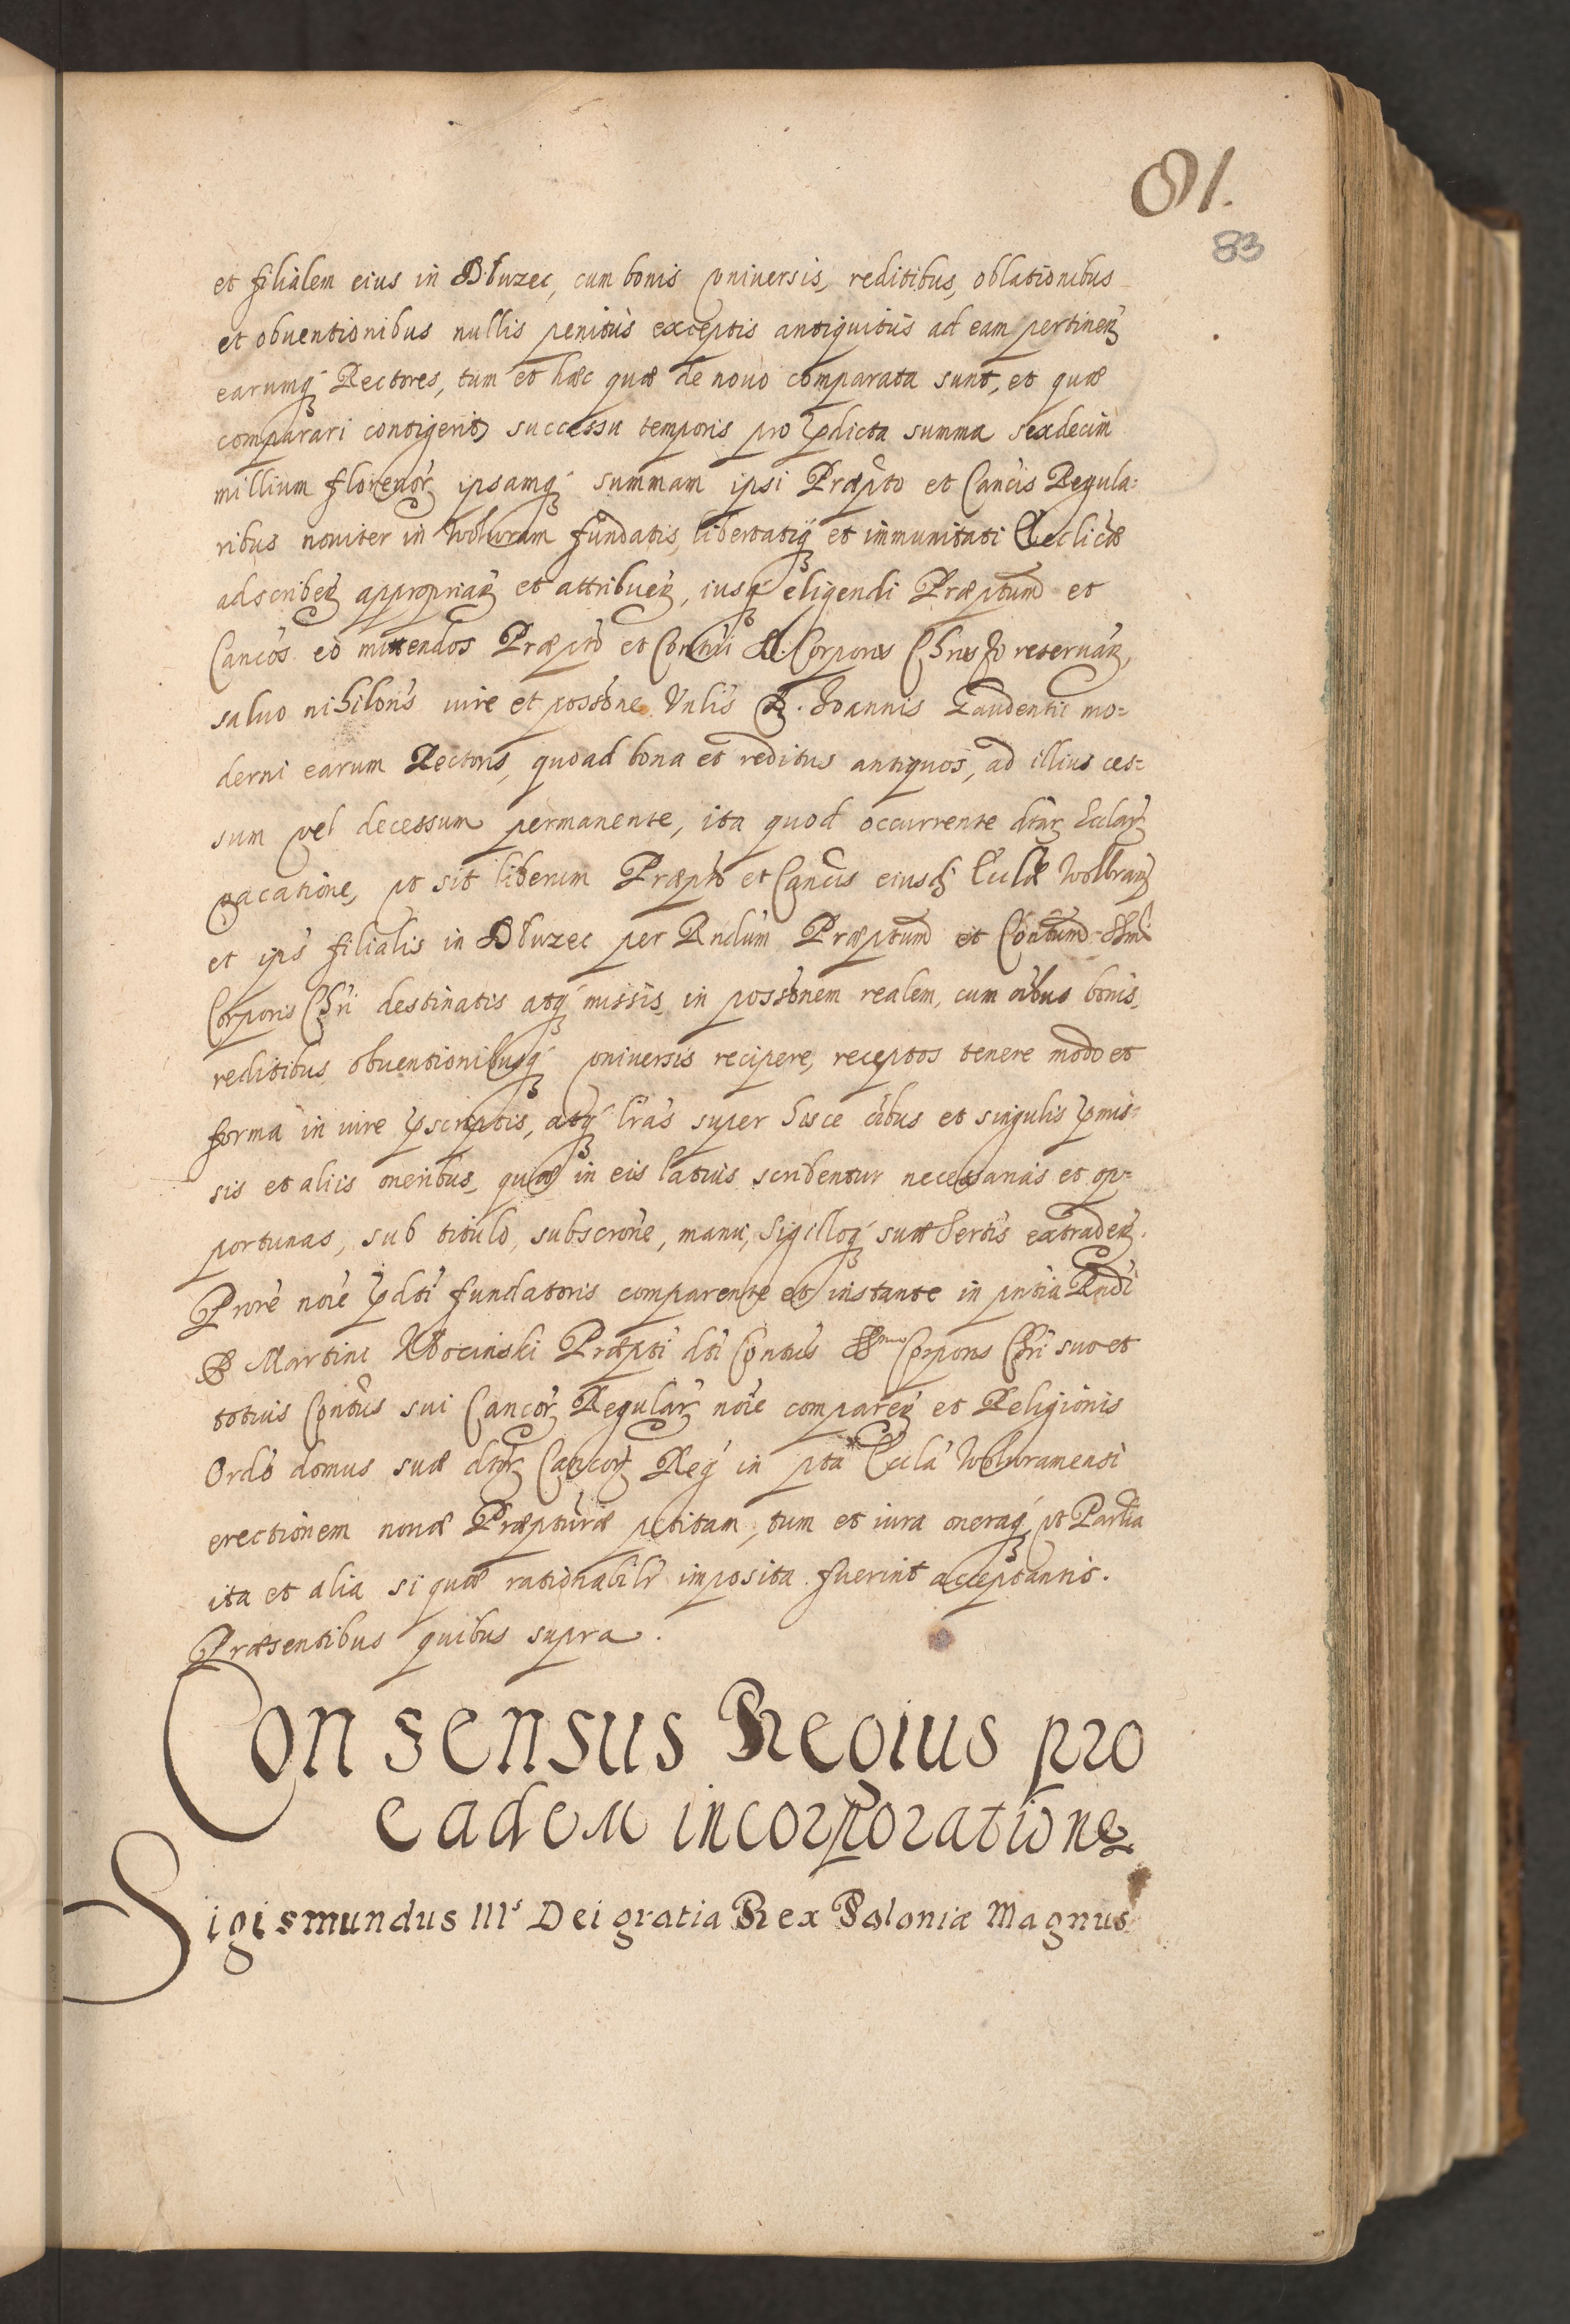 81.
83
et filialem eius in Dłuzec, cum bonis vniuersis, reditibus, oblationibus
et obuentionibus nullis penitùs exceptis antiquitùs ad eam pertineñ
earumq́ꝫ Rectores, tum et hæc quæ de nouo comparata sunt, et quæ
comparari contigerit successu temporis pro p̱dicta summa sexdecim
millium florenoꝝ ipsamq́ꝫ summam ipsi Præpto et Cancis Regula=
ribus nouiter in Wolbram fundatis, libertatiq́ꝫ et immunitati Ecclicæ
adscribeñ appropriañ et attribueñ, iusq́ꝫ eligendi Præptum et
Cancos eò mittendos Præpto et Contui Corporis Chri reseruañ,
saluo nihiloḿs iure et possone Vnlis D. Ioannis Gaudentii mo=
derni earum Rectoris, quoad bona et reditus antiquos, ad illius ces=
sum vel decessum permanente, ita quod occurrente dtaꝝ Eccłaꝝ
vacatione, vt sit liberum Præpto et Cancis eiusd́ Ecclæ Wolbrañ
et ips filialis in Dłuzec per Rndum Præptum et Contum SSmi
Corporis Chri destinatis atq́ꝫ missis, in possonem realem, cum oibus bonis,
reditibus obuentionibusq́ꝫ vniuersis recipere, receptos tenere modo et
forma in iure p̱scriptis, atq́ꝫ Lras super hisce oibus et singulis p̱mis=
sis et aliis oneribus, quæ in eis latius scribentur necessarias et op=
portunas, sub titulo, subscrone, manu, Sigilloq́ꝫ suæ Sertis extradeñ.
Prore noie p̱dti fundatoris comparente et instante in pntia Rndi
D Martini Kłocinski Præpti dti Contus SSmi Corporis Chri suo et
totius Contus sui Cancoꝝ Regulaꝝ noie compareñ et Religionis
Ordo domus suæ dtoꝝ Cancoꝝ Reg in pta Eccla Wolbramensi
erectionem nouæ Præpturæ petitam, tum et iura oneraq́ꝫ vt Parlia
ita et alia si quæ rationabilr imposita fuerint acceptantis.
Præsentibus quibus supra.
Consensus Regius pro
eadem incorporatione
Sigismundus IIIs Dei gratia Rex Poloniæ Magnus